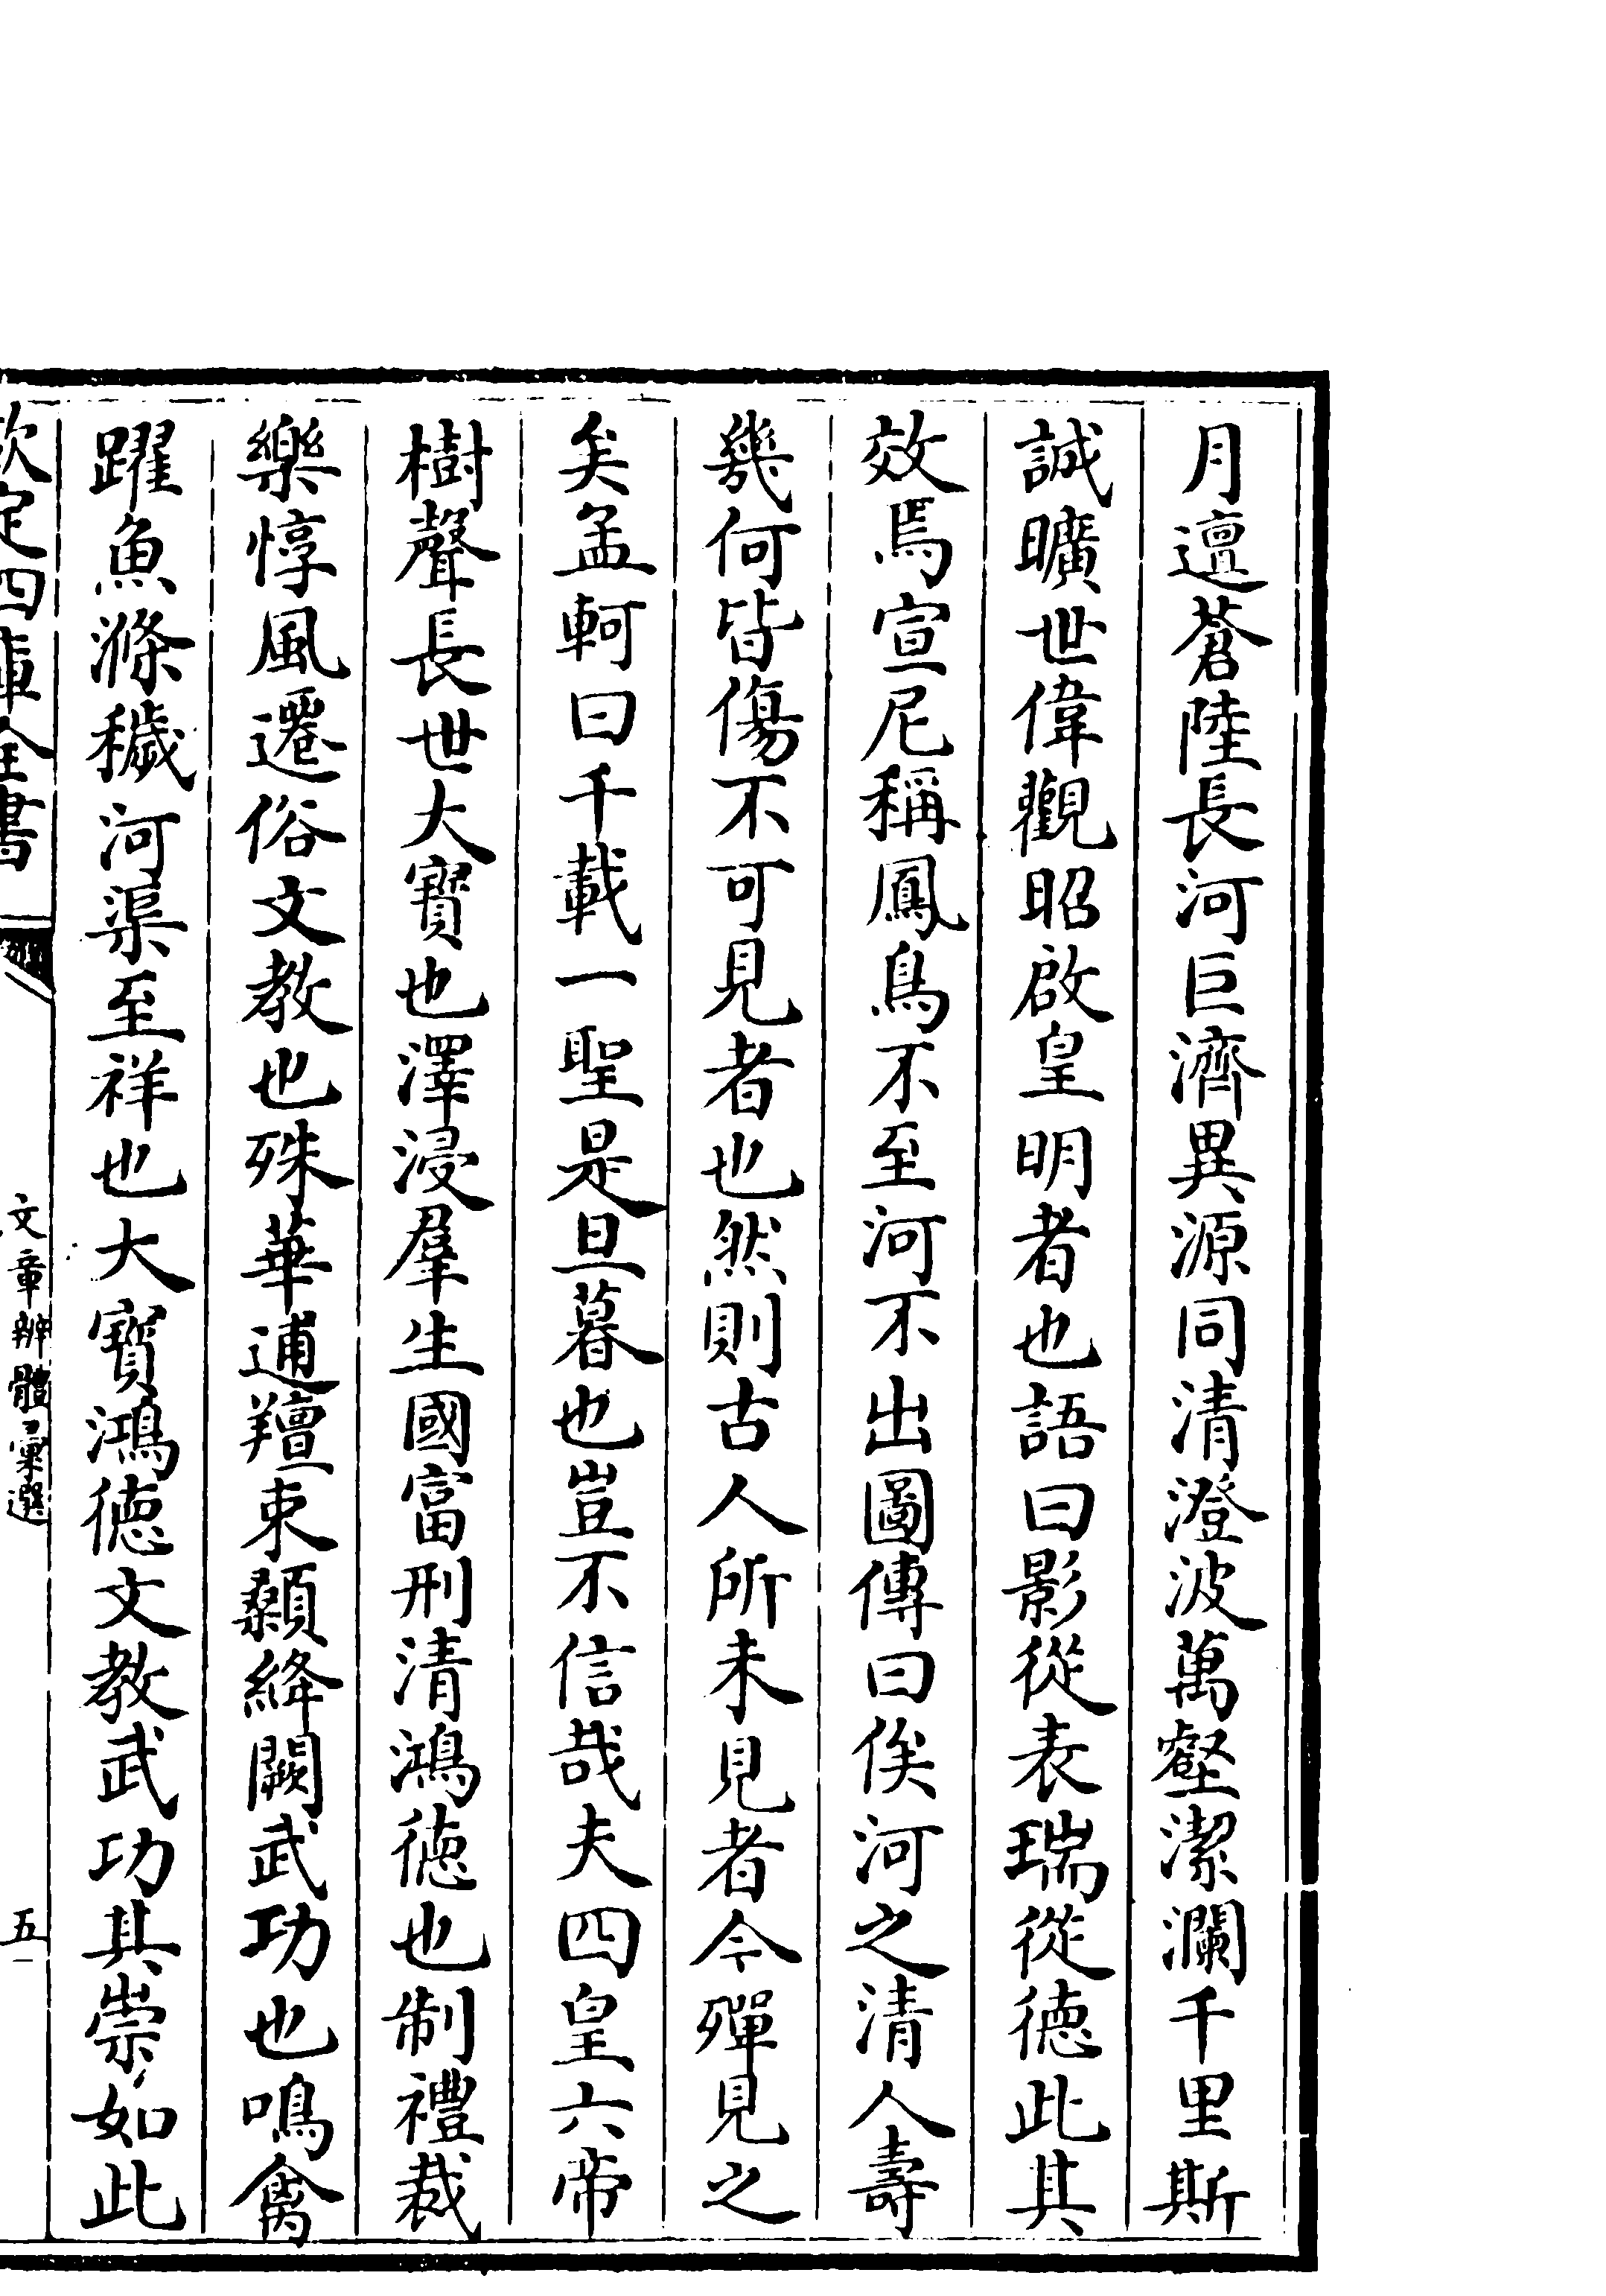 月邅蒼陸長河巨濟異源同清澄波萬壑潔瀾千里斯
誠曠世偉觀昭啟皇明者也語曰影從表瑞從徳此其
效焉宣尼稱鳳鳥不至河不出圖傳曰俟河之清人壽
幾何皆傷不可見者也然則古人所未見者今殫見之
矣孟軻曰千載一聖是旦暮也豈不信哉夫四皇六帝
樹聲長世大寶也澤浸羣生國富刑清鴻徳也制禮裁
樂惇風遷俗文教也殊華逋羶束顙絳闕武功也鳴禽
躍魚滌穢河渠至祥也大寶鴻徳文教武功其崇如此
欽定四庫全書
文章辨體彙選
五